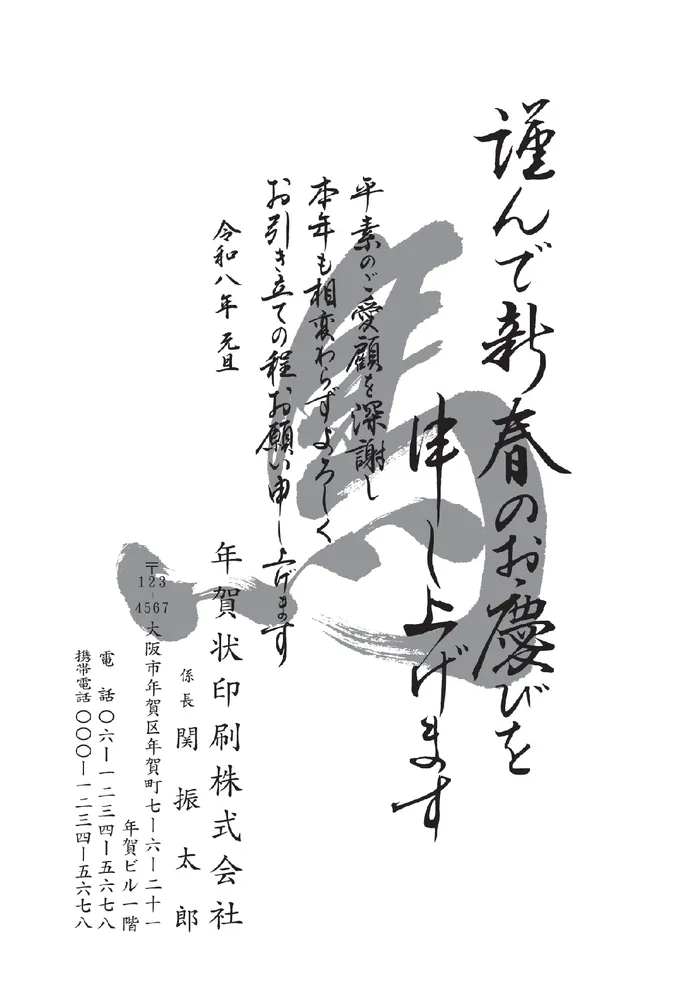 謹んで新春のお慶びを
申し上げます
平素のご愛顧を深謝し
本年も相変わらずよろしく
お引き立ての程お願い申し上げます
令和八年 元旦
年賀状印刷株式会社
係長 関振太郎
〒123-4567 大阪市年賀区年賀町七ー六ー二十一
年賀ビル一階
電話 〇六ー一二三四ー五六七八
携帯電話 〇〇〇ー一二三四ー五六七八
馬